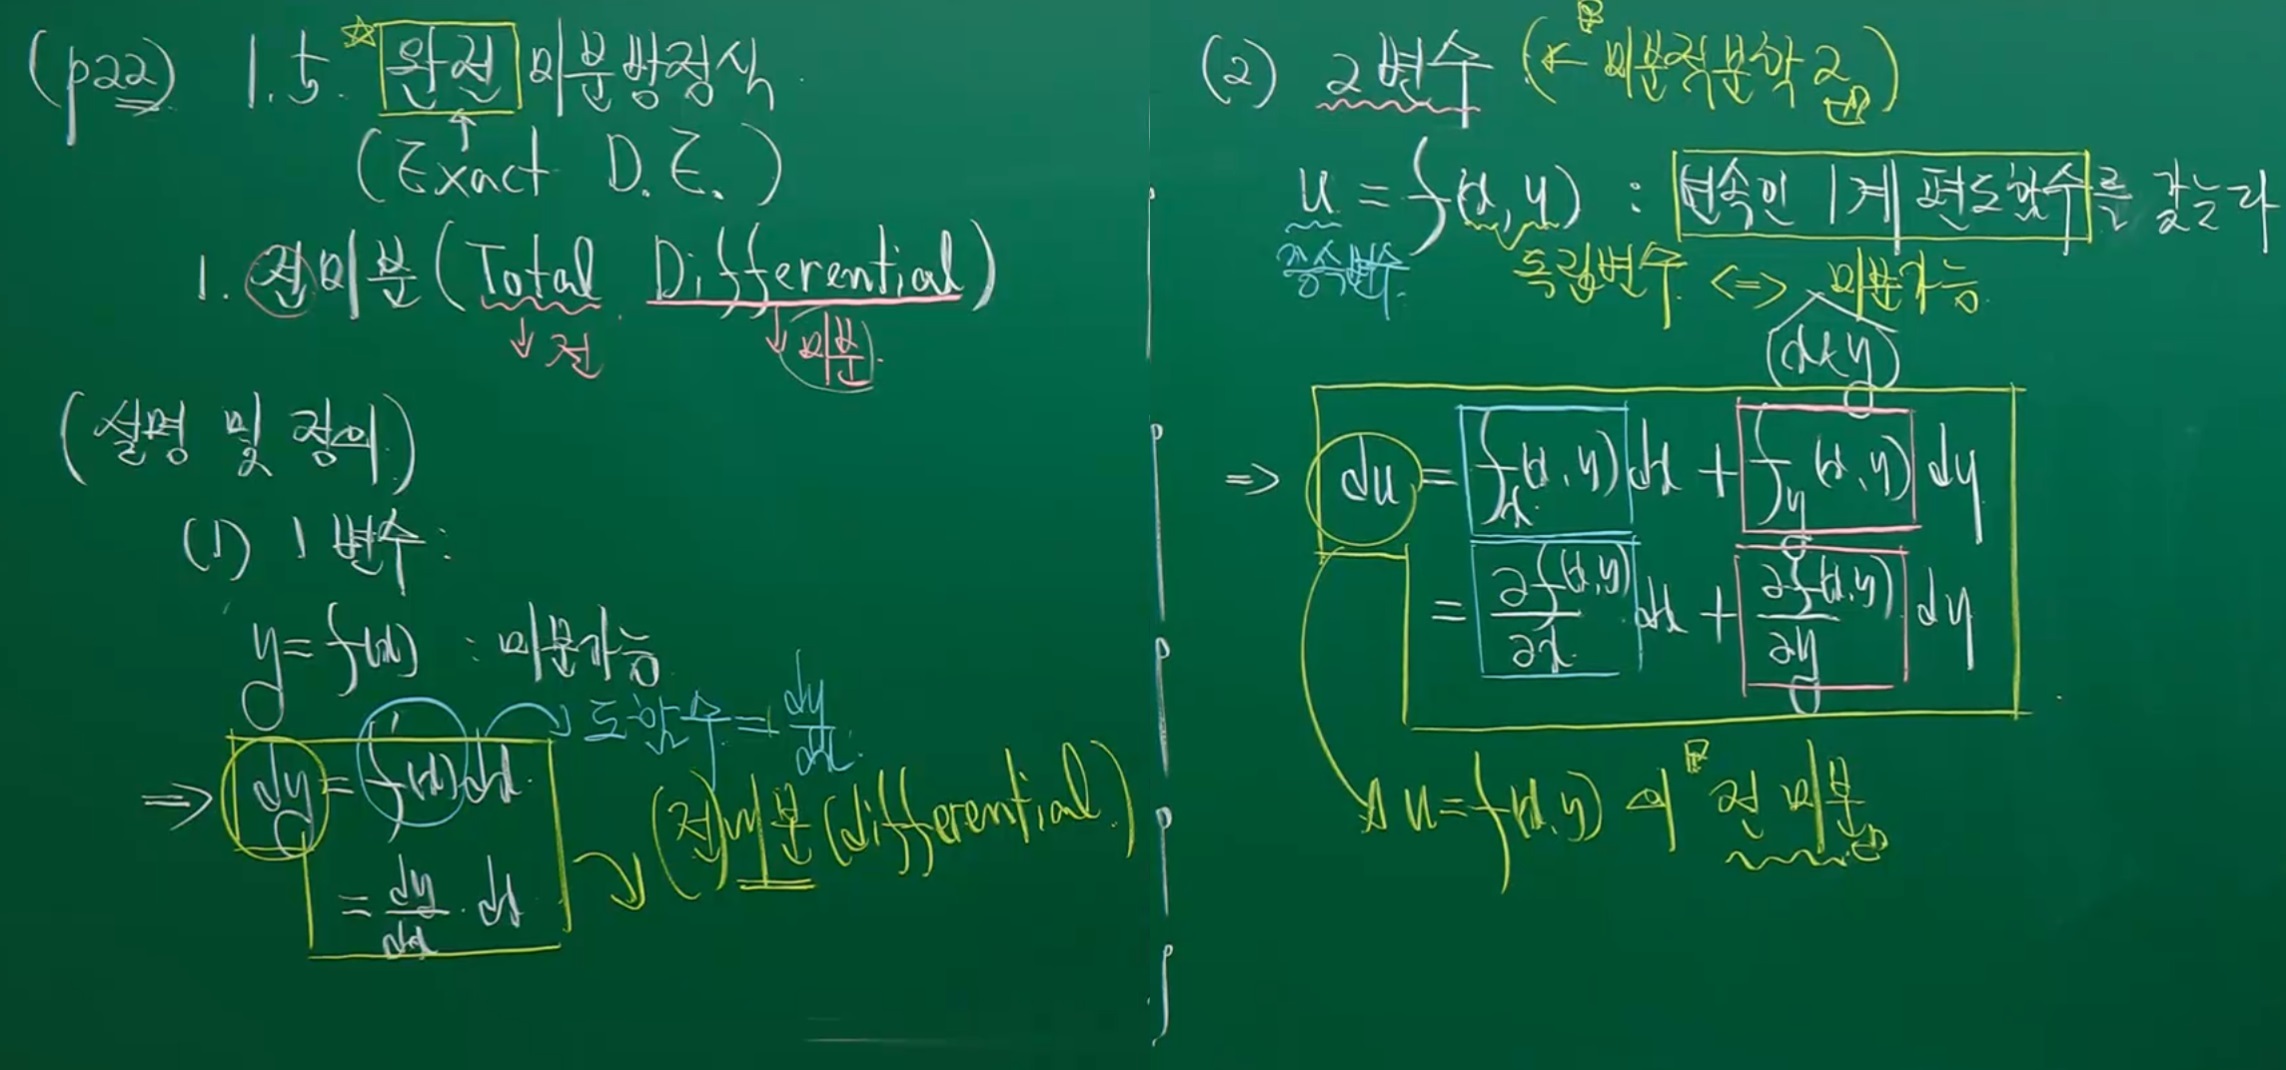 (p22) 1.5. ☆ 완전 미분방정식.
(Exact D.E.)
1. 전미분 (Total Differential)
↓ 전 ↓ 미분.
(설명 및 정의)
(1) 1변수:
y = f(x) : 미분가능
도함수 = dy/dx.
⇒ dy = f'(x)dx.
= dy/dx · dx
(전)미분 (differential)
(2) 2변수 (← "미분적분학 2")
u = f(x, y) : 연속인 1계 편도함수를 갖는다
종속변수. 독립변수 <=> 미분가능
(x & y)
⇒ du = f_x(x, y)dx + f_y(x, y)dy
= ∂f(x,y)/∂x dx + ∂f(x,y)/∂y dy
u = f(x, y) 의 "전미분"